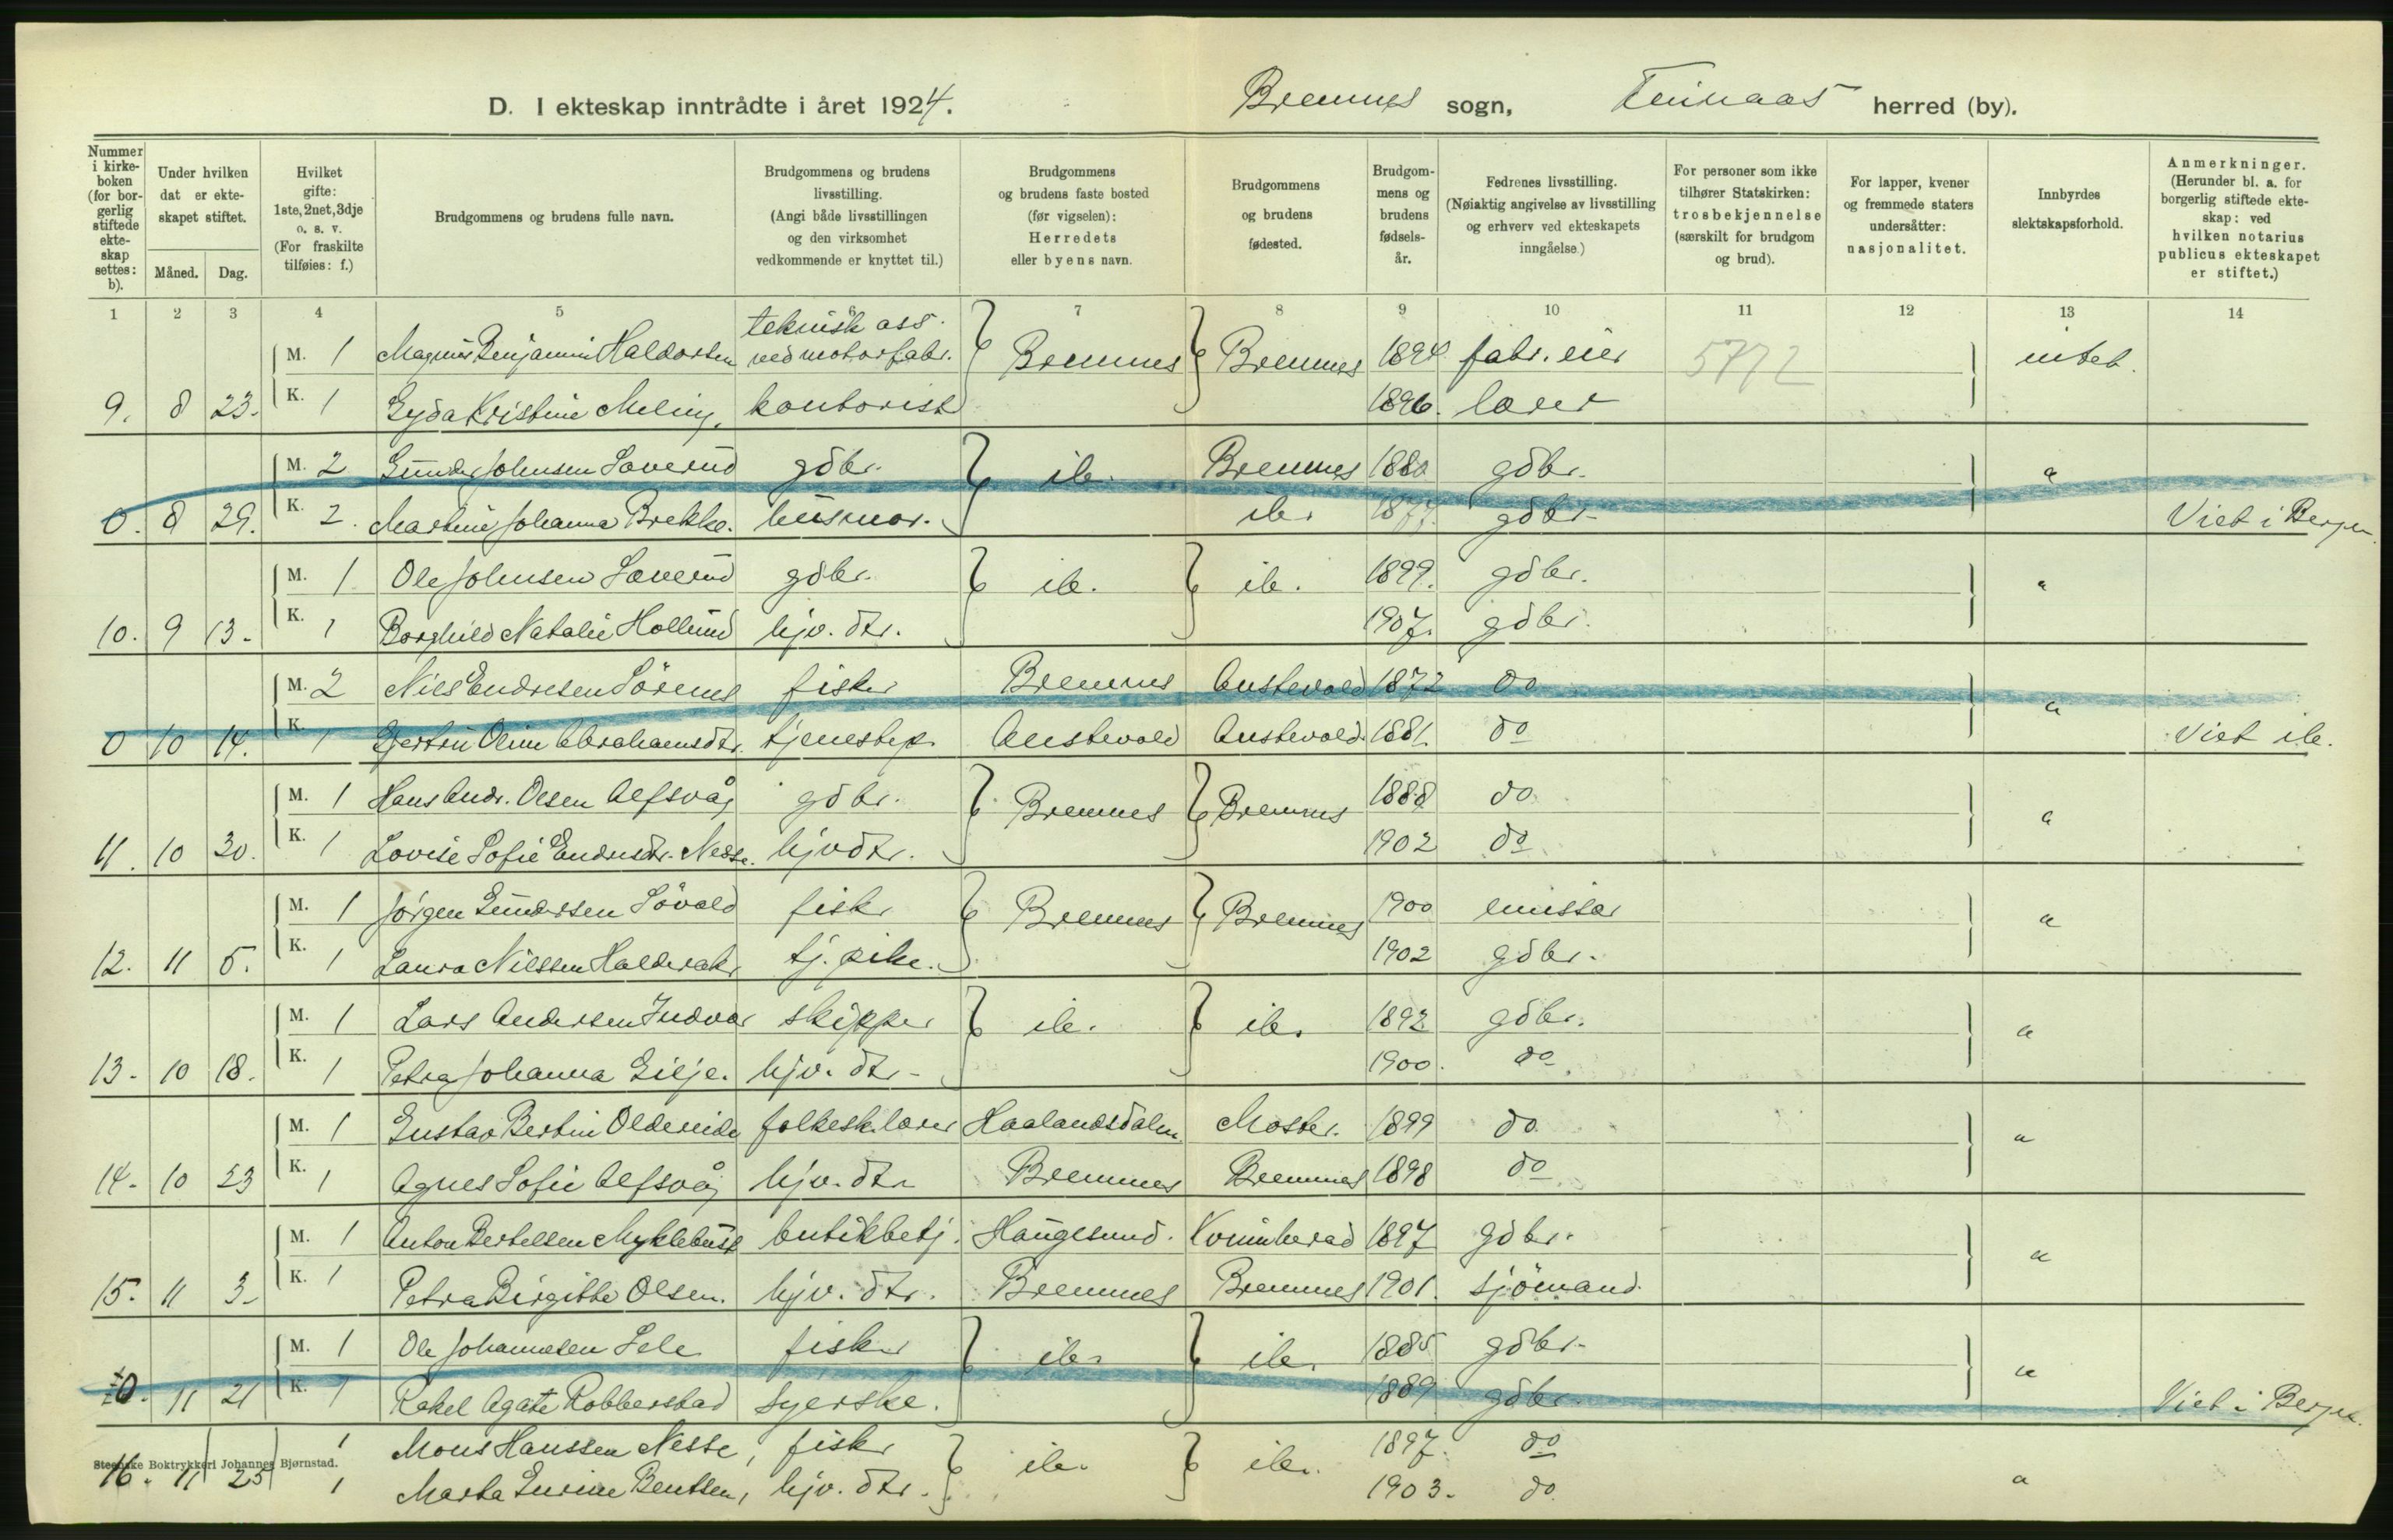 D. I ekteskap inntrådte i året 1924.
Bremnes sogn, Finnaas herred (by).
Nummer i kirkeboken (for borgerlig stiftede ekteskap settes: b).
Under hvilken dat er ekteskapet stiftet.
Måned. Dag.
Hvilket gifte: 1ste, 2net, 3dje o. s. v. (For fraskilte tilføies: f.)
Brudgommens og brudens fulle navn.
Brudgommens og brudens livsstilling. (Angi både livsstillingen og den virksomhet vedkommende er knyttet til.)
Brudgommens og brudens faste bosted (før vigselen): Herredets eller byens navn.
Brudgommens og brudens fødested.
Brudgommens og brudens fødselsår.
Fedrenes livsstilling. (Nøiaktig angivelse av livsstilling og erhverv ved ekteskapets inngåelse.)
For personer som ikke tilhører Statskirken: trosbekjennelse (særskilt for brudgom og brud).
For lapper, kvener og fremmede staters undersåtter: nasjonalitet.
Innbyrdes slektskapsforhold.
Anmerkninger. (Herunder bl. a. for borgerlig stiftede ekteskap: ved hvilken notarius publicus ekteskapet er stiftet.)
1 2 3 4 5 6 7 8 9 10 11 12 13 14
M. 1 Magnus Benjamin Haldorsen teknisk ass. ved motorfabr. Bremnes Bremnes 1894 fabr. eier 5772 intet.
9. 8 23. K. 1 Gyda Kristine Meling, kontorist 1896. lærer
M. 2 Gunder Johnsen Laverud gdbr. ib. Bremnes 1880 gdbr. "
0. 8 29. K. 2. Martine Johanna Brekke. husmor. ib. 1877. gdbr. Viet i Bergen
M. 1 Ole Johnsen Laverud gdbr. ib. ib. 1899. gdbr. "
10. 9 13. K. 1 Borghild Natalie Hollund hjv. dtr. 1907. gdbr.
M. 2 Nils Endresen Sörenes fisker Bremnes Austevold 1872 do "
0 10 14. K. 1 Gjertru Oline Abrahamsdtr. tjenestep. Austevold Austevold. 1881. do Viet ib.
M. 1 Hans Andr. Olsen Alfsvåg gdbr. Bremnes Bremnes 1888 do "
11. 10 30. K. 1 Lovise Sofie Endresdtr. Nesse. hjvdtr. 1902 do
M. 1 Jörgen Gundersen Lövold fisker Bremnes Bremnes 1900 emissær "
12. 11 5. K. 1 Laura Nilssen Halderaker tj. pike. 1902 gdbr.
M. 1 Lars Andersen Indvær skipper ib. ib. 1892 gdbr. "
13. 10 18. K. 1 Petra Johanna Gilje. hjv. dtr. 1900. do
M. 1 Gustav Bertin Oldereide folkesk.lærer Haalandsdalen Moster. 1899 do "
14. 10 23 K. 1 Agnes Sofie Alfsvåg hjv. dtr Bremnes Bremnes 1898 do
M. 1 Anton Bertelsen Myklebust butikbetj. Haugesund. Kvinnherad 1897 gdbr. "
15. 11 3. K. 1 Petra Birgitte Olsen. hjv. dtr. Bremnes Bremnes 1901. sjömand.
M. 1 Ole Johannesen Sele fisker ib. ib. 1885 gdbr. "
0. 11 21 K. 1 Rakel Agate Robberstad syerske. 1889 gdbr. Viet i Bergen.
1 Mons Hanssen Nesse, fisker ib. ib. 1897. do
Steenske Boktrykkeri Johannes Bjørnstad.
16. 11 25 1 Marta Surine Bentsen, hjv. dtr. 1903. do "